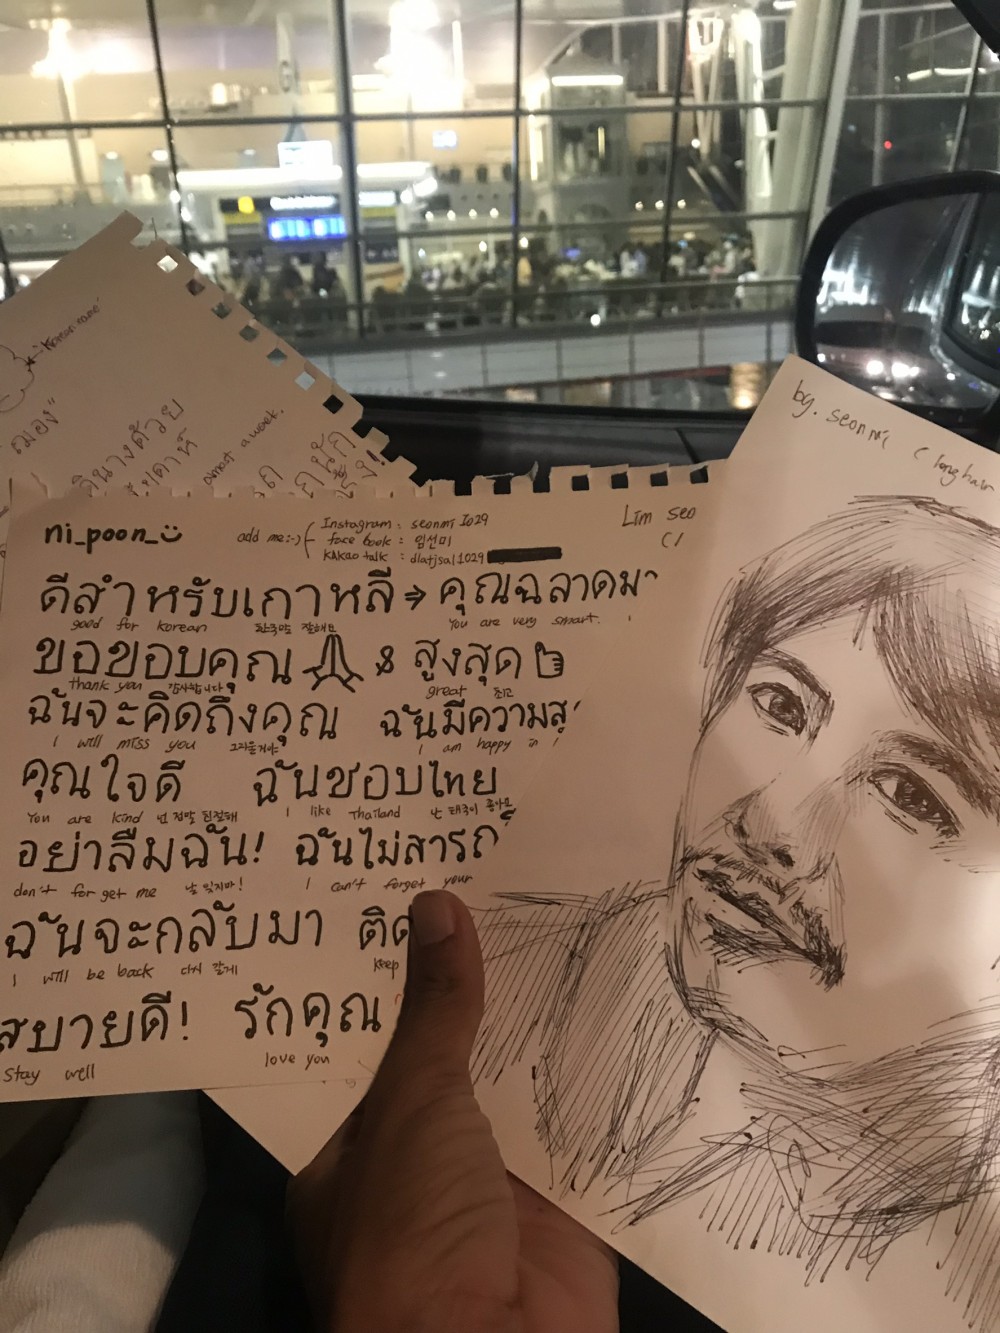 "Korean name"
ฌอง"
ดีนางด้วย
Almost a week.
ni_poon_
add me:-)
Instagram : seonmi 1029
face book : 임선미
KAKao talk : dlatjsal1029
Lim seo
by. seonmi ( long hair
ดีสำหรับเกาหลี → คุณฉลาดมา
good for korean 한국말 잘해요 You are very smart.
ขอขอบคุณ & สูงสุด
thank you 감사합니다 great 최고
ฉันจะคิดถึงคุณ ฉันมีความสุ
I will miss you 그리울거야 I am happy in
คุณใจดี ฉันชอบไทย
You are kind 넌 정말 친절해 I like Thailand 난 태국이 좋아요
อย่าลืมฉัน! ฉันไม่สารถ
don't forget me 날 잊지마! I can't forget your
ฉันจะกลับมา ติด
I will be back 다시 올게 keep
สบายดี! รักคุณ
Stay well love you